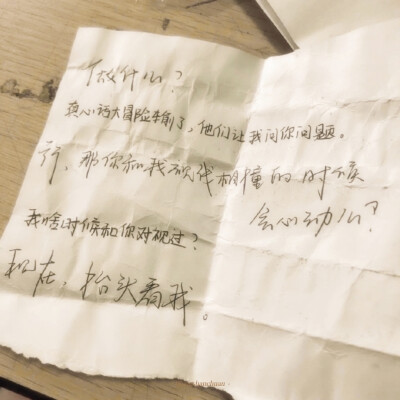 做什么?
真心话大冒险本剩了，他们让我问你问题。
行，那你和我视线相撞的时候
会心动么?
我啥时候和你对视过?
现在，抬头看我。